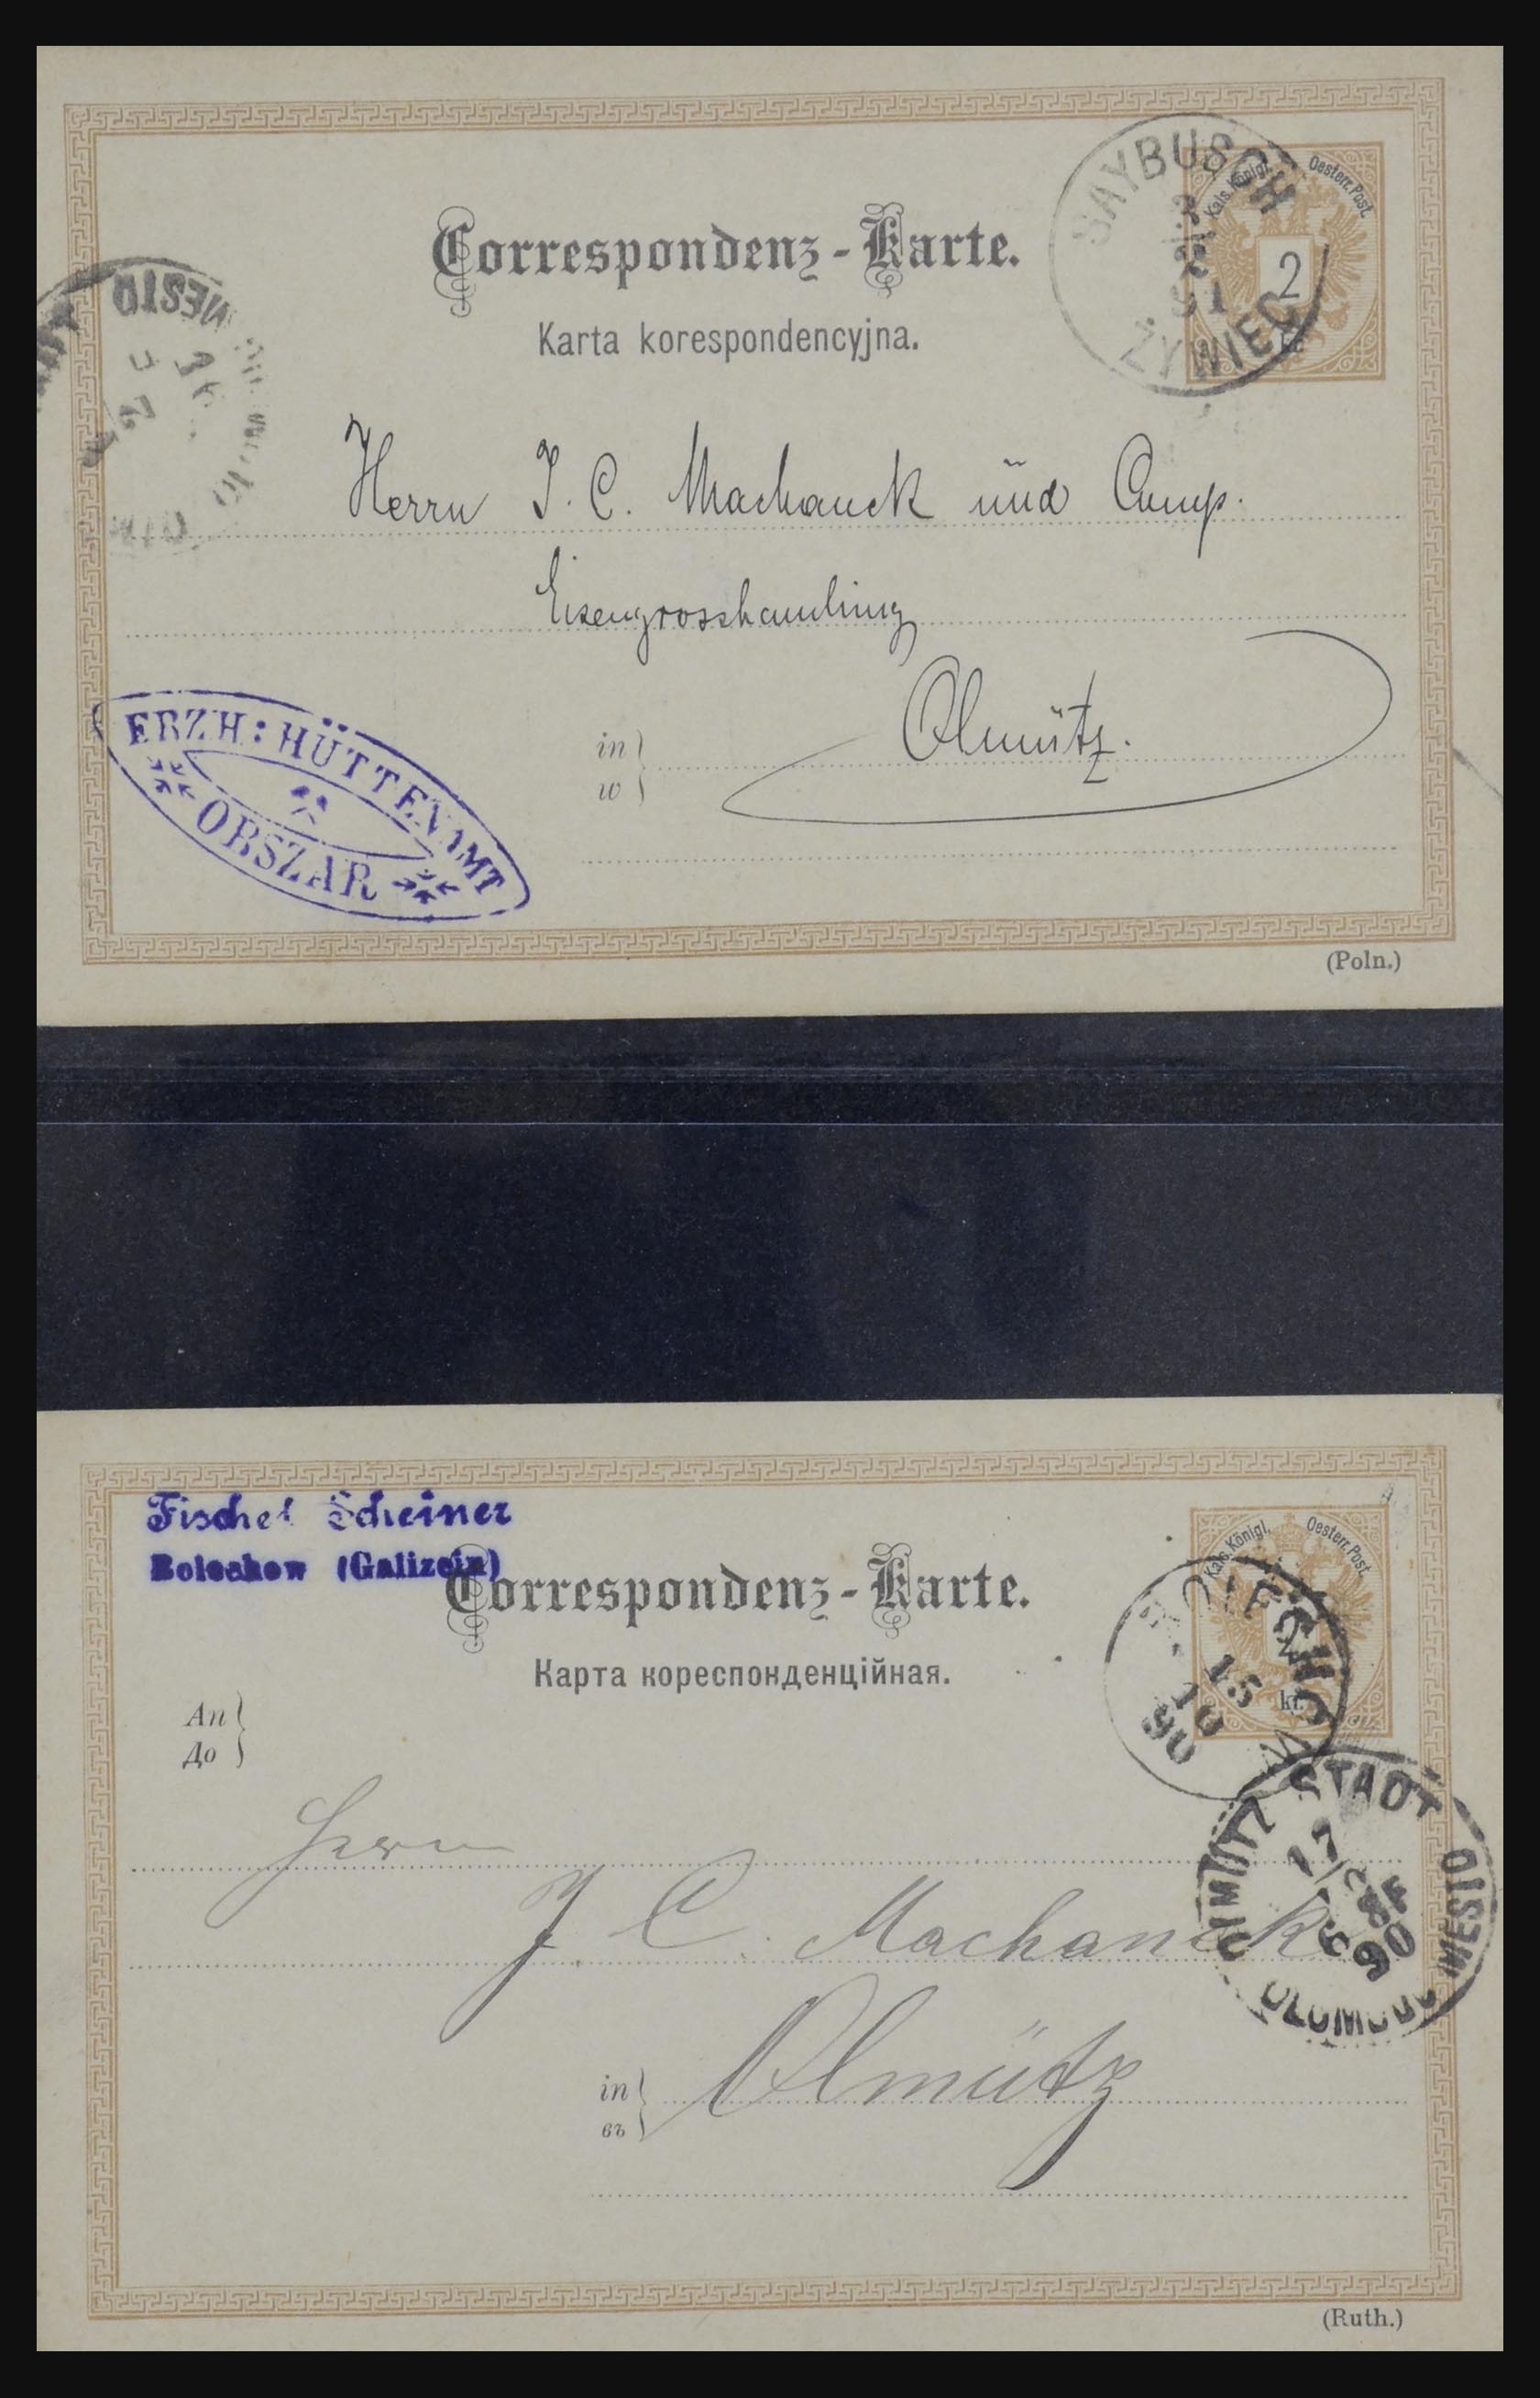 SAYBUSCH
ŻYWIEC
Kais. Königl. Oesterr. Post.
2
Correspondenz-Karte.
Karta korespondencyjna.
MESTO
Herrn J. C. Machanek und Comp.
Eisengrosshandlung
in
w
Olmütz.
ERZH: HÜTTENAMT
OBSZAR
(Poln.)
Fischel Scheiner
Bolechow (Galizein)
Kais. Königl. Oesterr. Post.
kr.
Correspondenz-Karte.
Карта кореспонденційная.
BOLECHOW
15
10
90
An
До
OLMÜTZ STADT
17
90
OLOMOUC MESTO
Herrn
J C. Machanek
in
въ
Olmütz
(Ruth.)